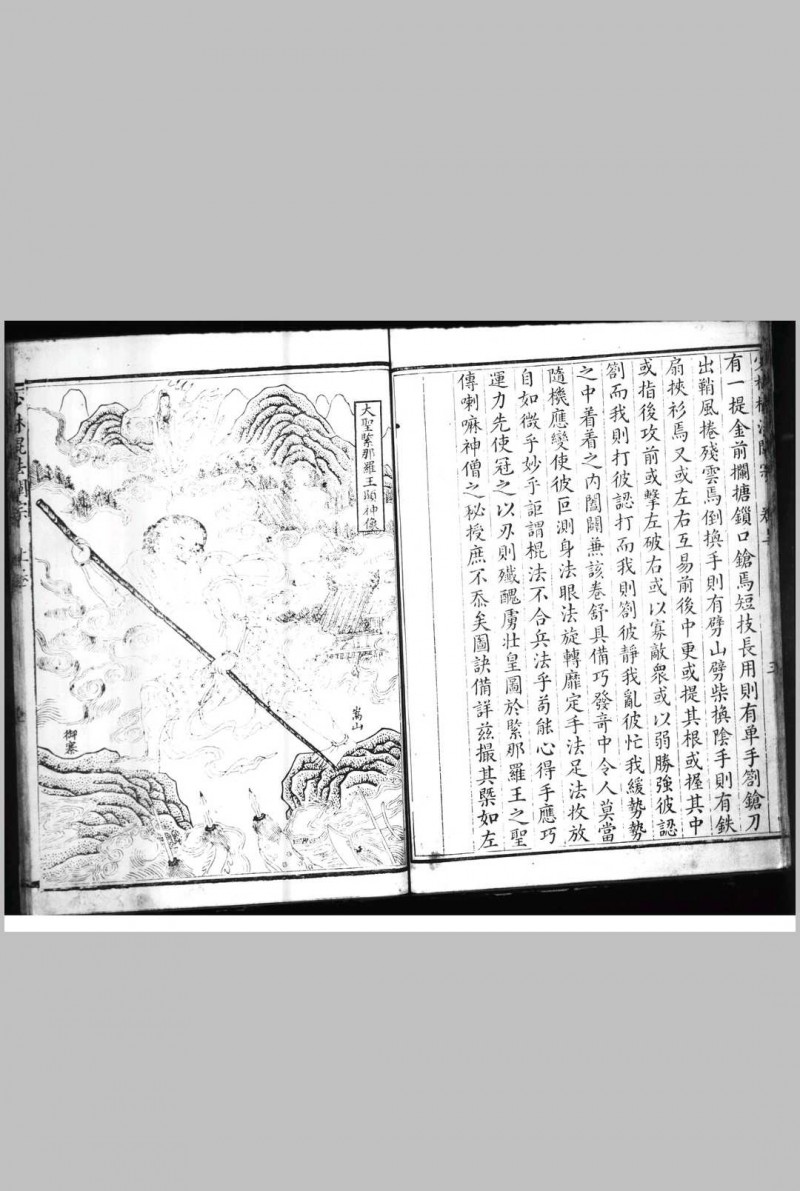 少林棍法闡宗 卷上 五
有一提金前攔搪鎖口鎗焉短技長用則有单手劄鎗刀
出鞘風捲殘雲焉倒換手則有劈山劈柴換陰手則有鉄
扇挾衫焉又或左右互易前後中更或提其根或握其中
或指後攻前或擊左破右或以寡敵衆或以弱勝強彼認
劄而我則打彼認打而我則劄彼静我亂彼忙我緩勢勢
之中着着之内闔闢兼該卷舒具備巧發竒中令人莫當
隨機應變使彼叵測身法眼法旋轉靡定手法足法收放
自如微乎妙乎詎謂棍法不合兵法乎茍能心得手應巧
運力先使冠之以刃則殲醜虜壯皇圖於緊那羅王之聖
傳喇嘛神僧之秘授庶不忝矣圖訣備詳兹撮其槩如左
大聖緊那羅王顯神像
嵩山
御寨
少林棍法闡宗 上卷